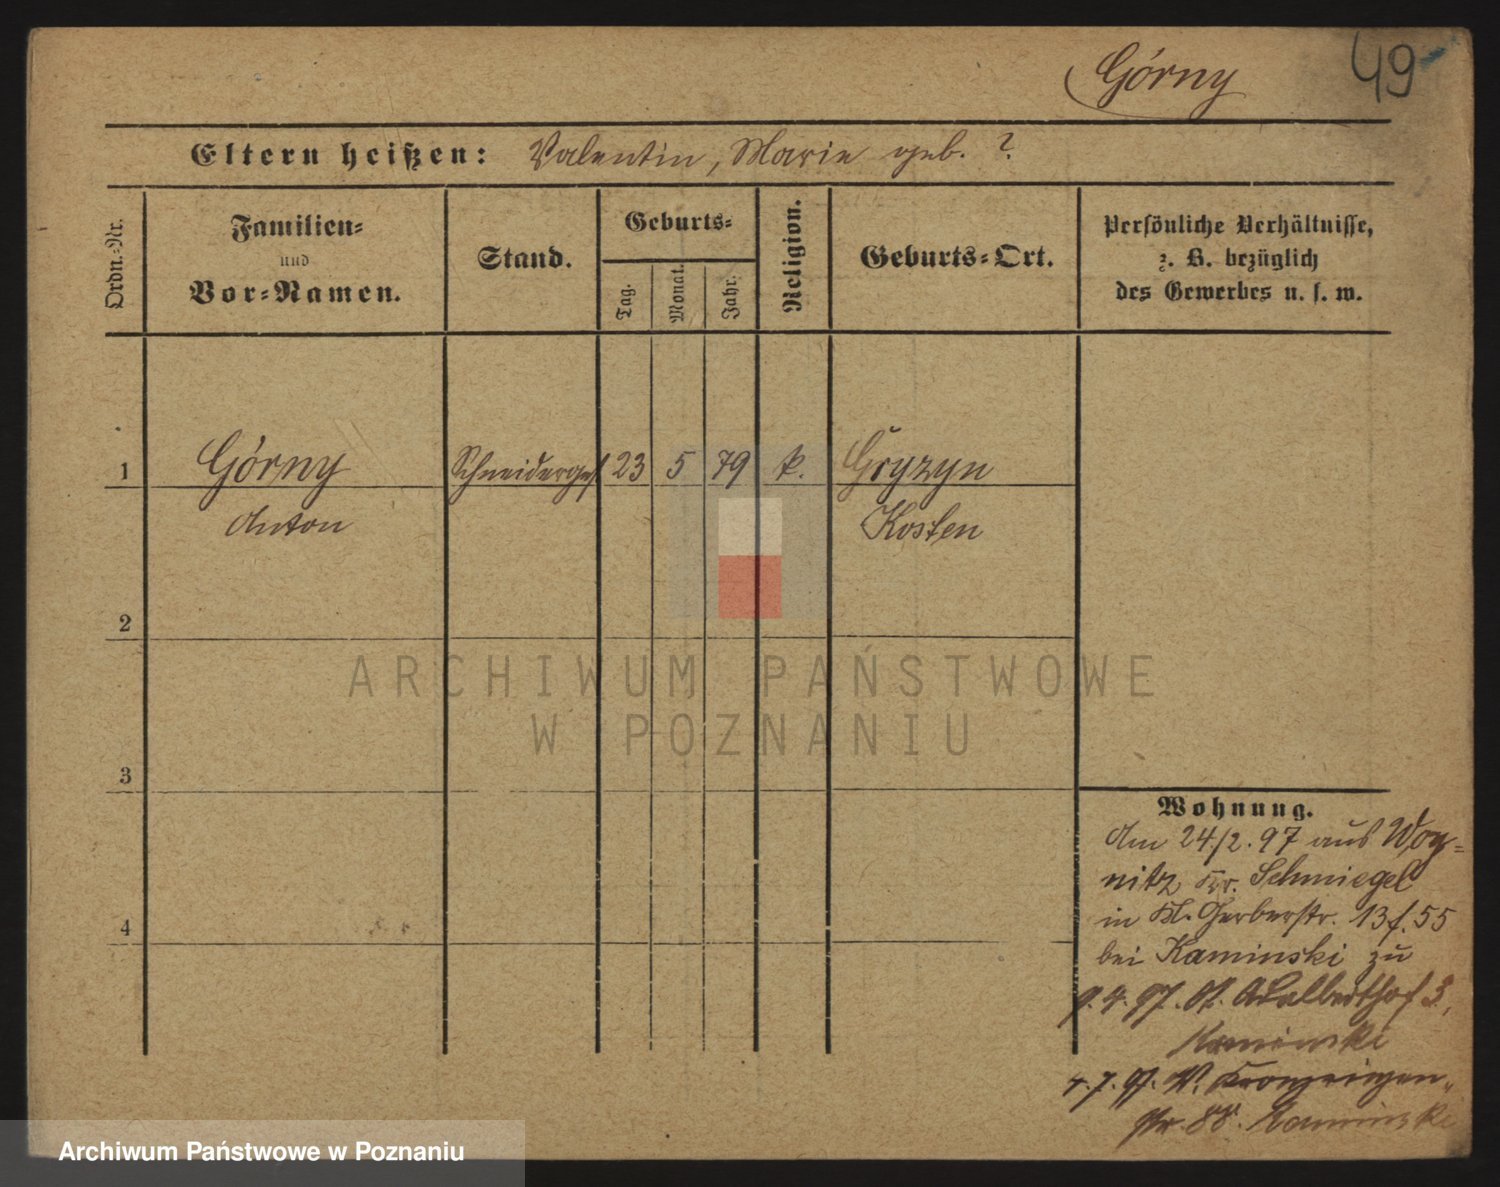 Górny
49
Eltern heißen: Valentin, Marie geb. ?
Ordn.-Nr.
Familien-
und
Vor-Namen.
Stand.
Geburts-
Tag.
Monat.
Jahr.
Religion.
Geburts-Ort.
Persönliche Verhältnisse,
z. B. bezüglich
des Gewerbes u. s. w.
1
Górny
Schneiderges
23
5
79
k.
Gryzyn
Anton
Kosten
2
ARCHIWUM PAŃSTWOWE
W POZNANIU
3
Wohnung.
Am 24/2.97 aus Woy-
nitz Kr. Schmiegel
in Kl. Gerberstr. 13 f. 55
4
bei Kaminski zu
9.4.97. St. Adalberthof 3,
Kaminski
4.7.97. W. Kronprinzen-
str. 88. Kaminski
Archiwum Państwowe w Poznaniu